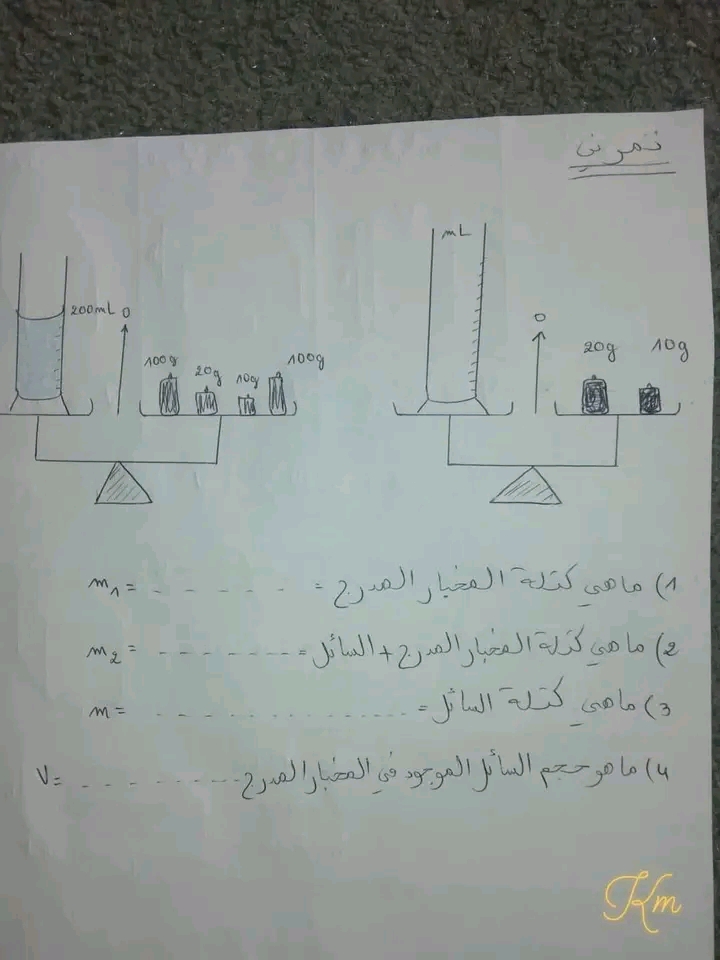 تمرين
mL
0
20g 10g
200mL 0
100g 20g 10g 100g
1) ما هي كتلة المخبار المدرج = - - - - - - m₁=
2) ما هي كتلة المخبار المدرج + السائل = - - - - - - - m₂=
3) ما هي كتلة السائل = - - - - - - - - - - - - - m=
4) ما هو حجم السائل الموجود في المخبار المدرج - - - - - - - - - V=
Km